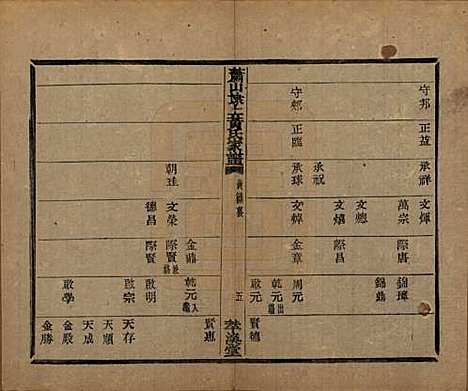 守邦
正益
承祥
文煇
萬宗
際唐
錦璋
文總
錦
文熺
際昌
承祝
守郟
正臨
承球
文焯
金章
周元
乾元出繼
敢元
賢德
蕭山埭上黃氏家譜
五
萃渙堂
賢惠
朝
文榮
金鼎
乾元入繼
際賢
德昌
際賢
敢明
敢宗
天存
天順
天成
敢學
金殿
金勝